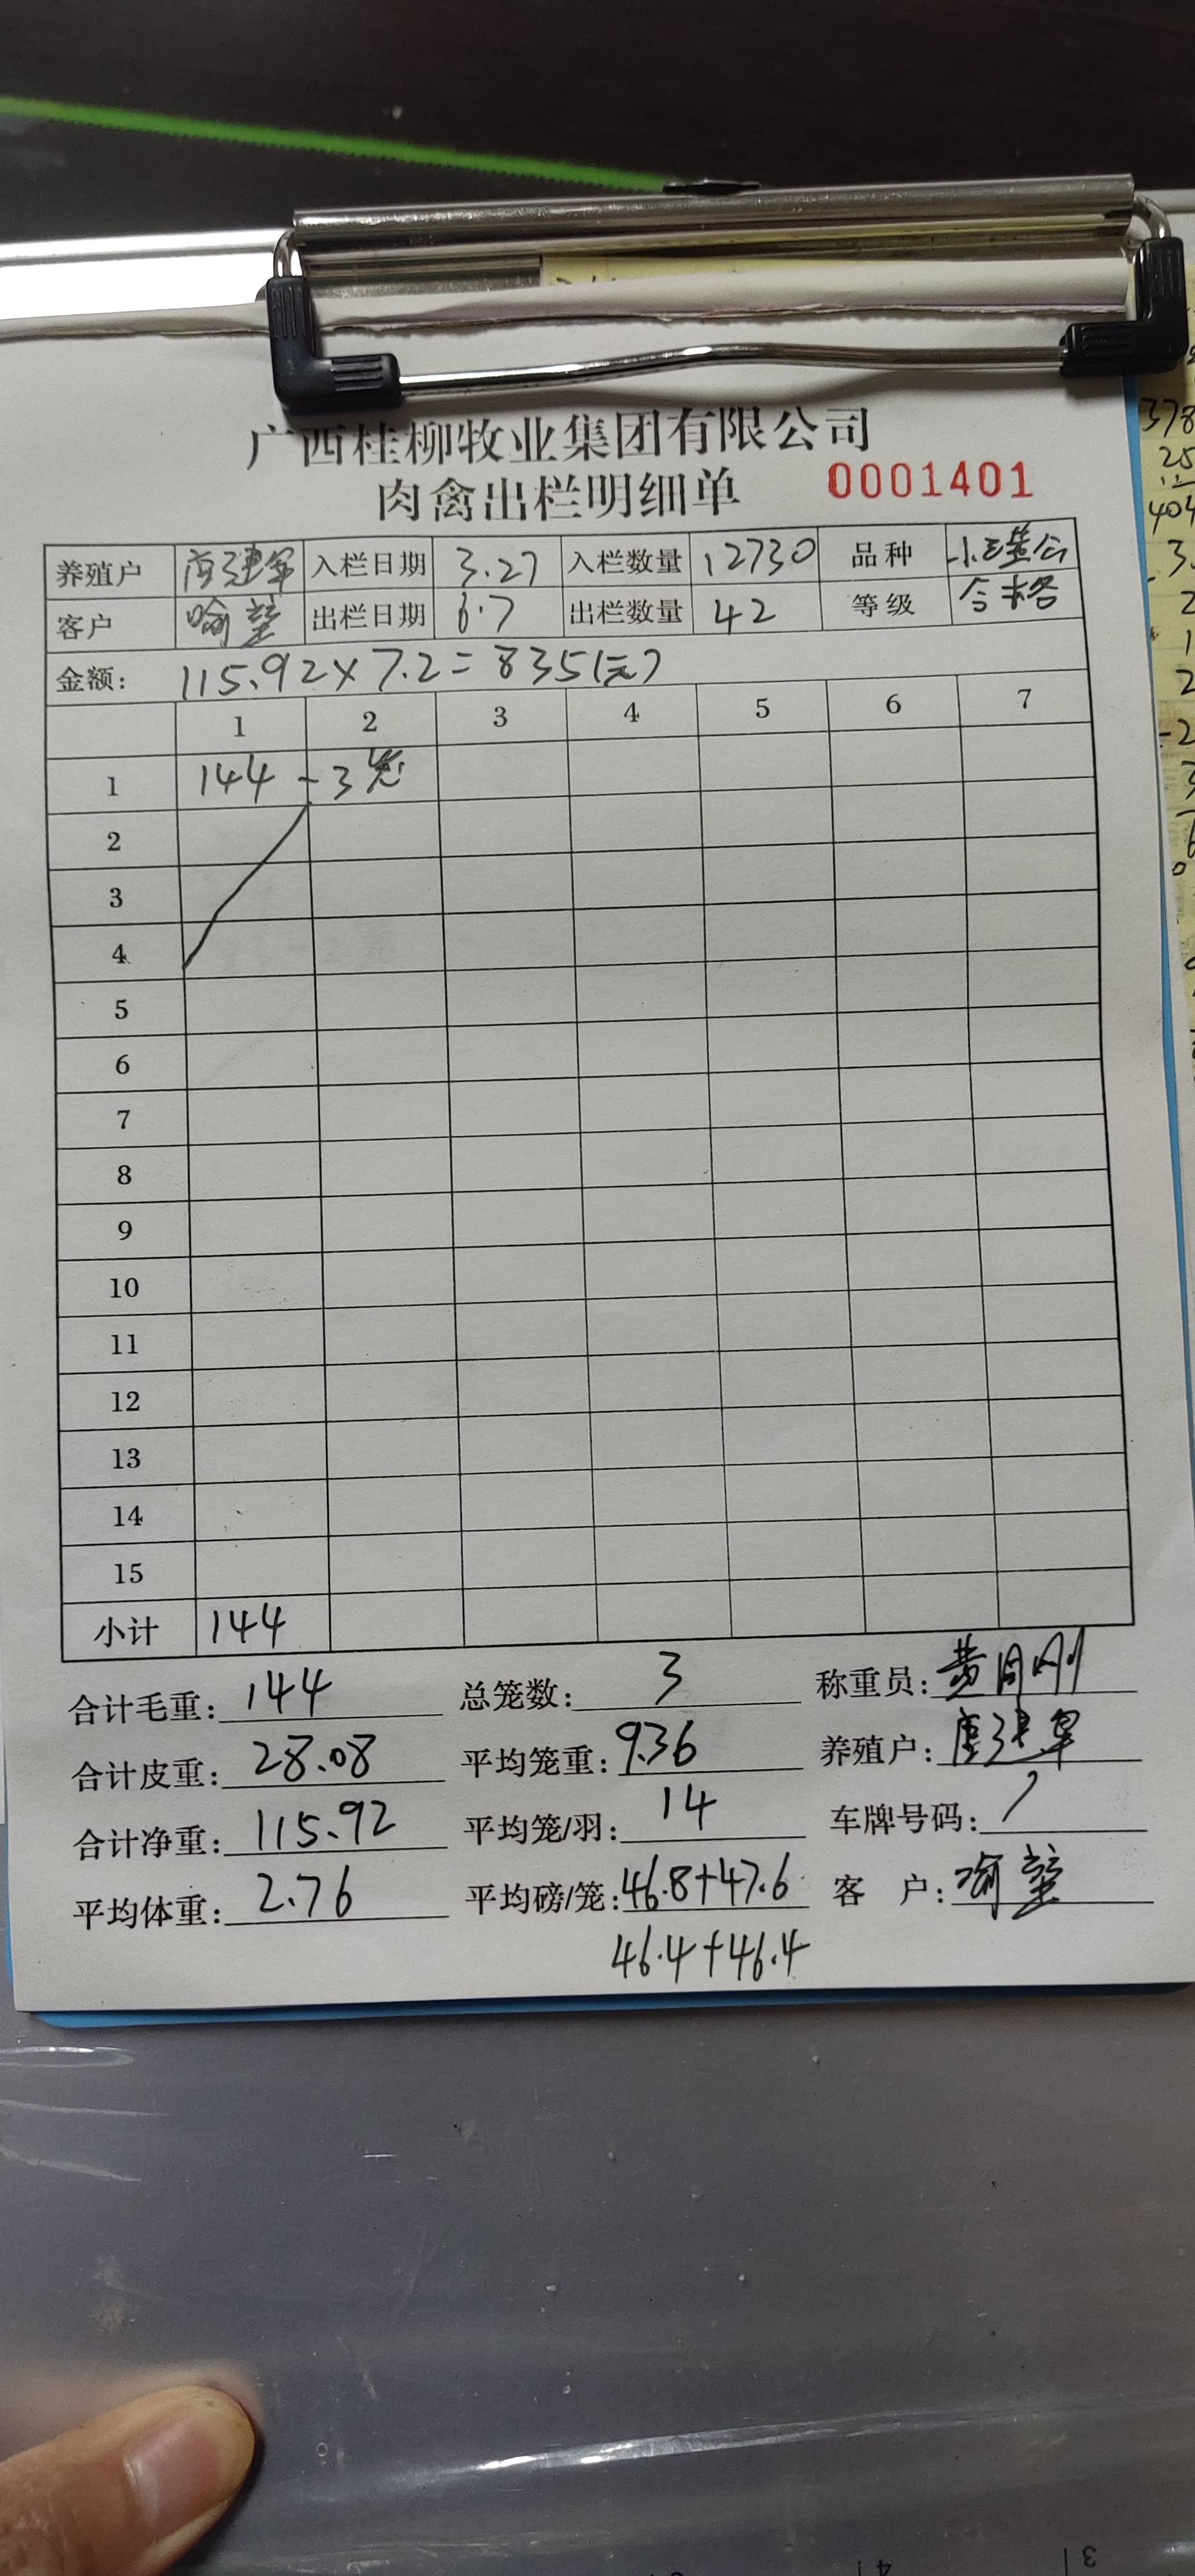 广西桂柳牧业集团有限公司
肉禽出栏明细单 0001401
养殖户 唐建军 入栏日期 3.27 入栏数量 12730 品种
客户 喻堃 出栏日期 6.7 出栏数量 42 等级 合格
金额: 115.92×7.2=835(元)
1 2 3 4 5 6 7
1 144 - 3笼
2
3
4
5
6
7
8
9
10
11
12
13
14
15
小计 144
合计毛重: 144 总笼数: 3 称重员: 黄自刚
合计皮重: 28.08 平均笼重: 9.36 养殖户: 唐建军
合计净重: 115.92 平均笼/羽: 14 车牌号码: /
平均体重: 2.76 平均磅/笼: 46.8+47.6 客 户: 喻堃
46.4+46.4
378
25
404